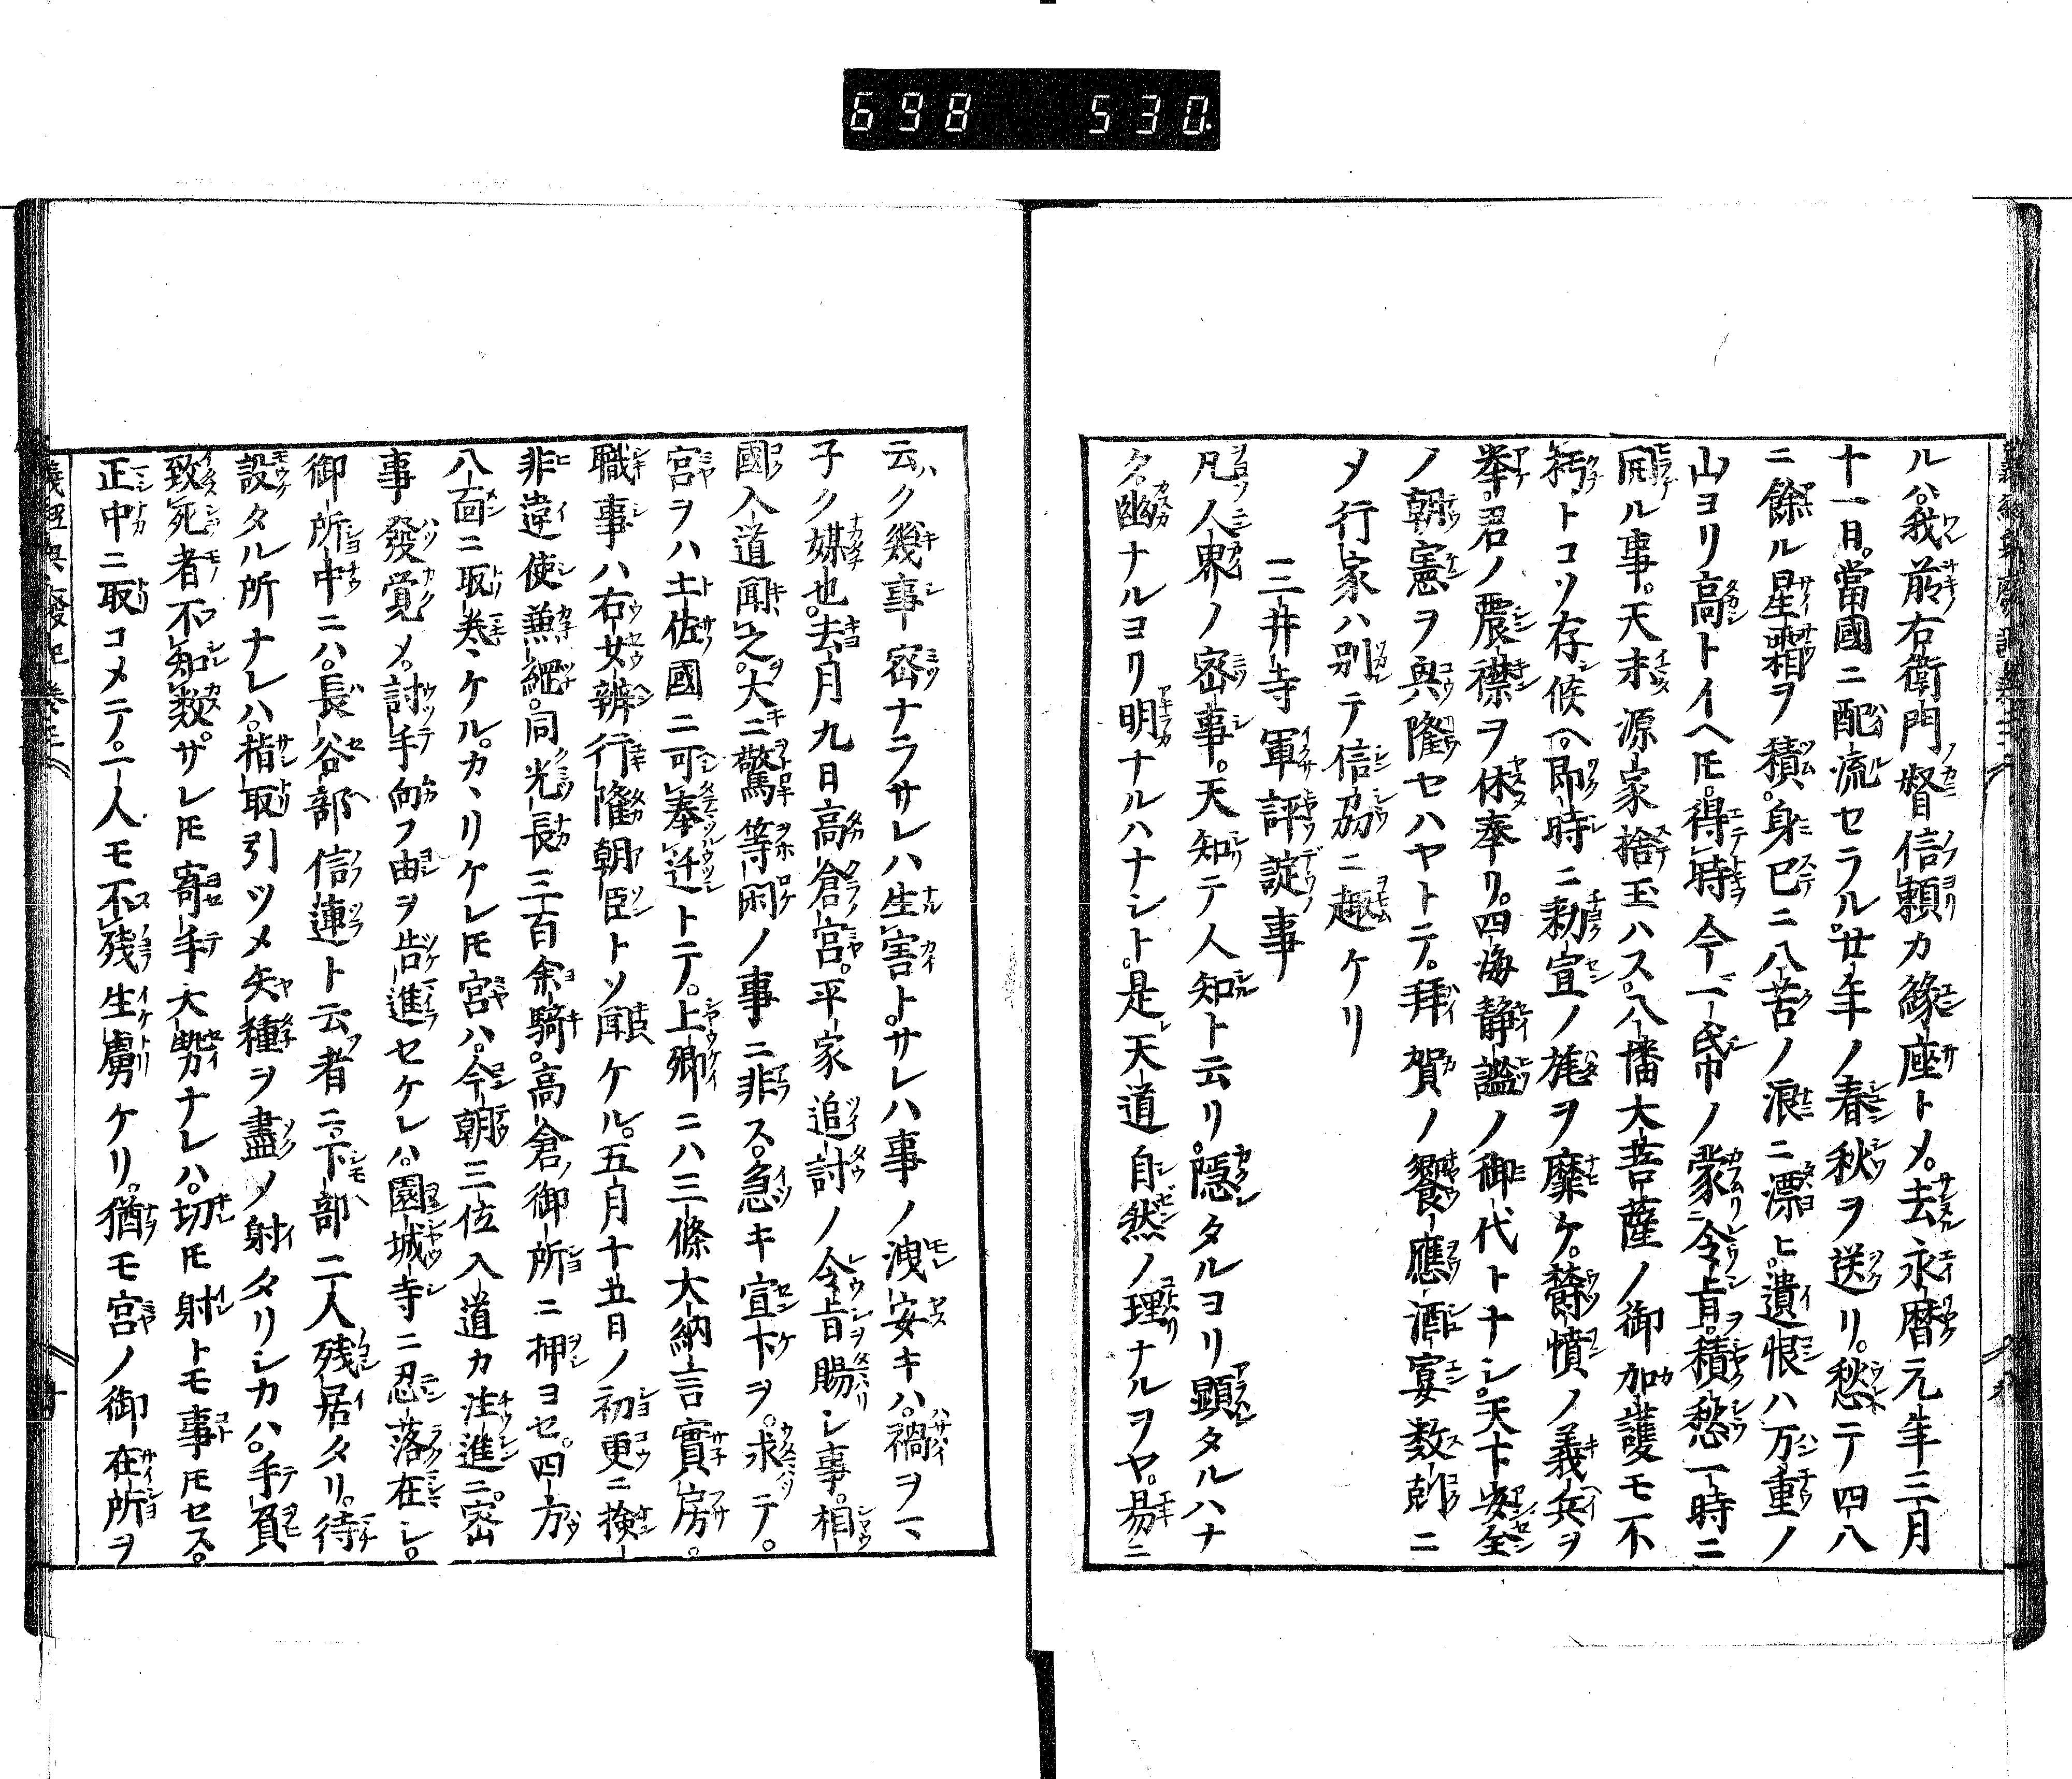 698 530.
ルハ。我前右衛門督信頼カ縁座トメ。去永暦元年三月
十一日。當國ニ配流セラル。廿年ノ春秋ヲ送リ。愁テ四八
ニ餘ル星霜ヲ積。身已ニ八苦ノ浪ニ漂ヒ。遺恨ハ万重ノ
山ヨリ高トイヘ𪜈。得時今一帋ノ蒙令旨。積愁一時ニ
開ル事。天未源家捨玉ハス。八幡大菩薩ノ御加護モ不
朽トコソ存候ヘ。即時ニ勅宣ノ旄ヲ靡ケ。欝憤ノ義兵ヲ
挙。君ノ震襟ヲ休奉リ。四海静謐ノ御代トナシ。天下安全
ノ朝憲ヲ興隆セハヤトテ。拜賀ノ饗應酒宴数剋ニ
メ行家ハ別テ信刕ニ趣ケリ
三井寺軍評諚事
凡人界ノ密事。天知テ人知ト云リ。隠タルヨリ顕タルハナ
ク。幽ナルヨリ明ナルハナシト。是天道自然ノ理ナルヲヤ。易ニ
云ハク幾事密ナラサレハ生害ト。サレハ事ノ洩安キハ。禍ヲ一
子ク媒也。去月九日高倉宮。平家追討ノ令旨賜シ事。相
國入道聞之。大ニ驚等閑ノ事ニ非ス。急キ宣下ヲ。求テ。
宮ヲハ土佐國ニ可奉迁トテ。上卿ニハ三條大納言實房。
職事ハ右女辨行隆朝臣トソ聞ケル。五月十五日ノ初更ニ検
非違使兼綱。同光長三百余騎。高倉ノ御所ニ押ヨセ。四方
八面ニ取巻ケル。カヽリケレ𪜈宮ハ。今朝三位入道カ注進ニ。密
事發覚メ。討手向フ由ヲ告進セケレハ。園城寺ニ忍落在シ。
御所中ニハ。長谷部信連ト云者ニ。下部二人残居タリ。待
設タル所ナレハ。指取引ツメ矢種ヲ盡ノ射タリシカハ。手負
致死者不知数。サレ𪜈寄手大勢ナレハ。切𪜈射トモ事𪜈セス。
正中ニ取コメテ。一人モ不残生虜ケリ。猶モ宮ノ御在所ヲ